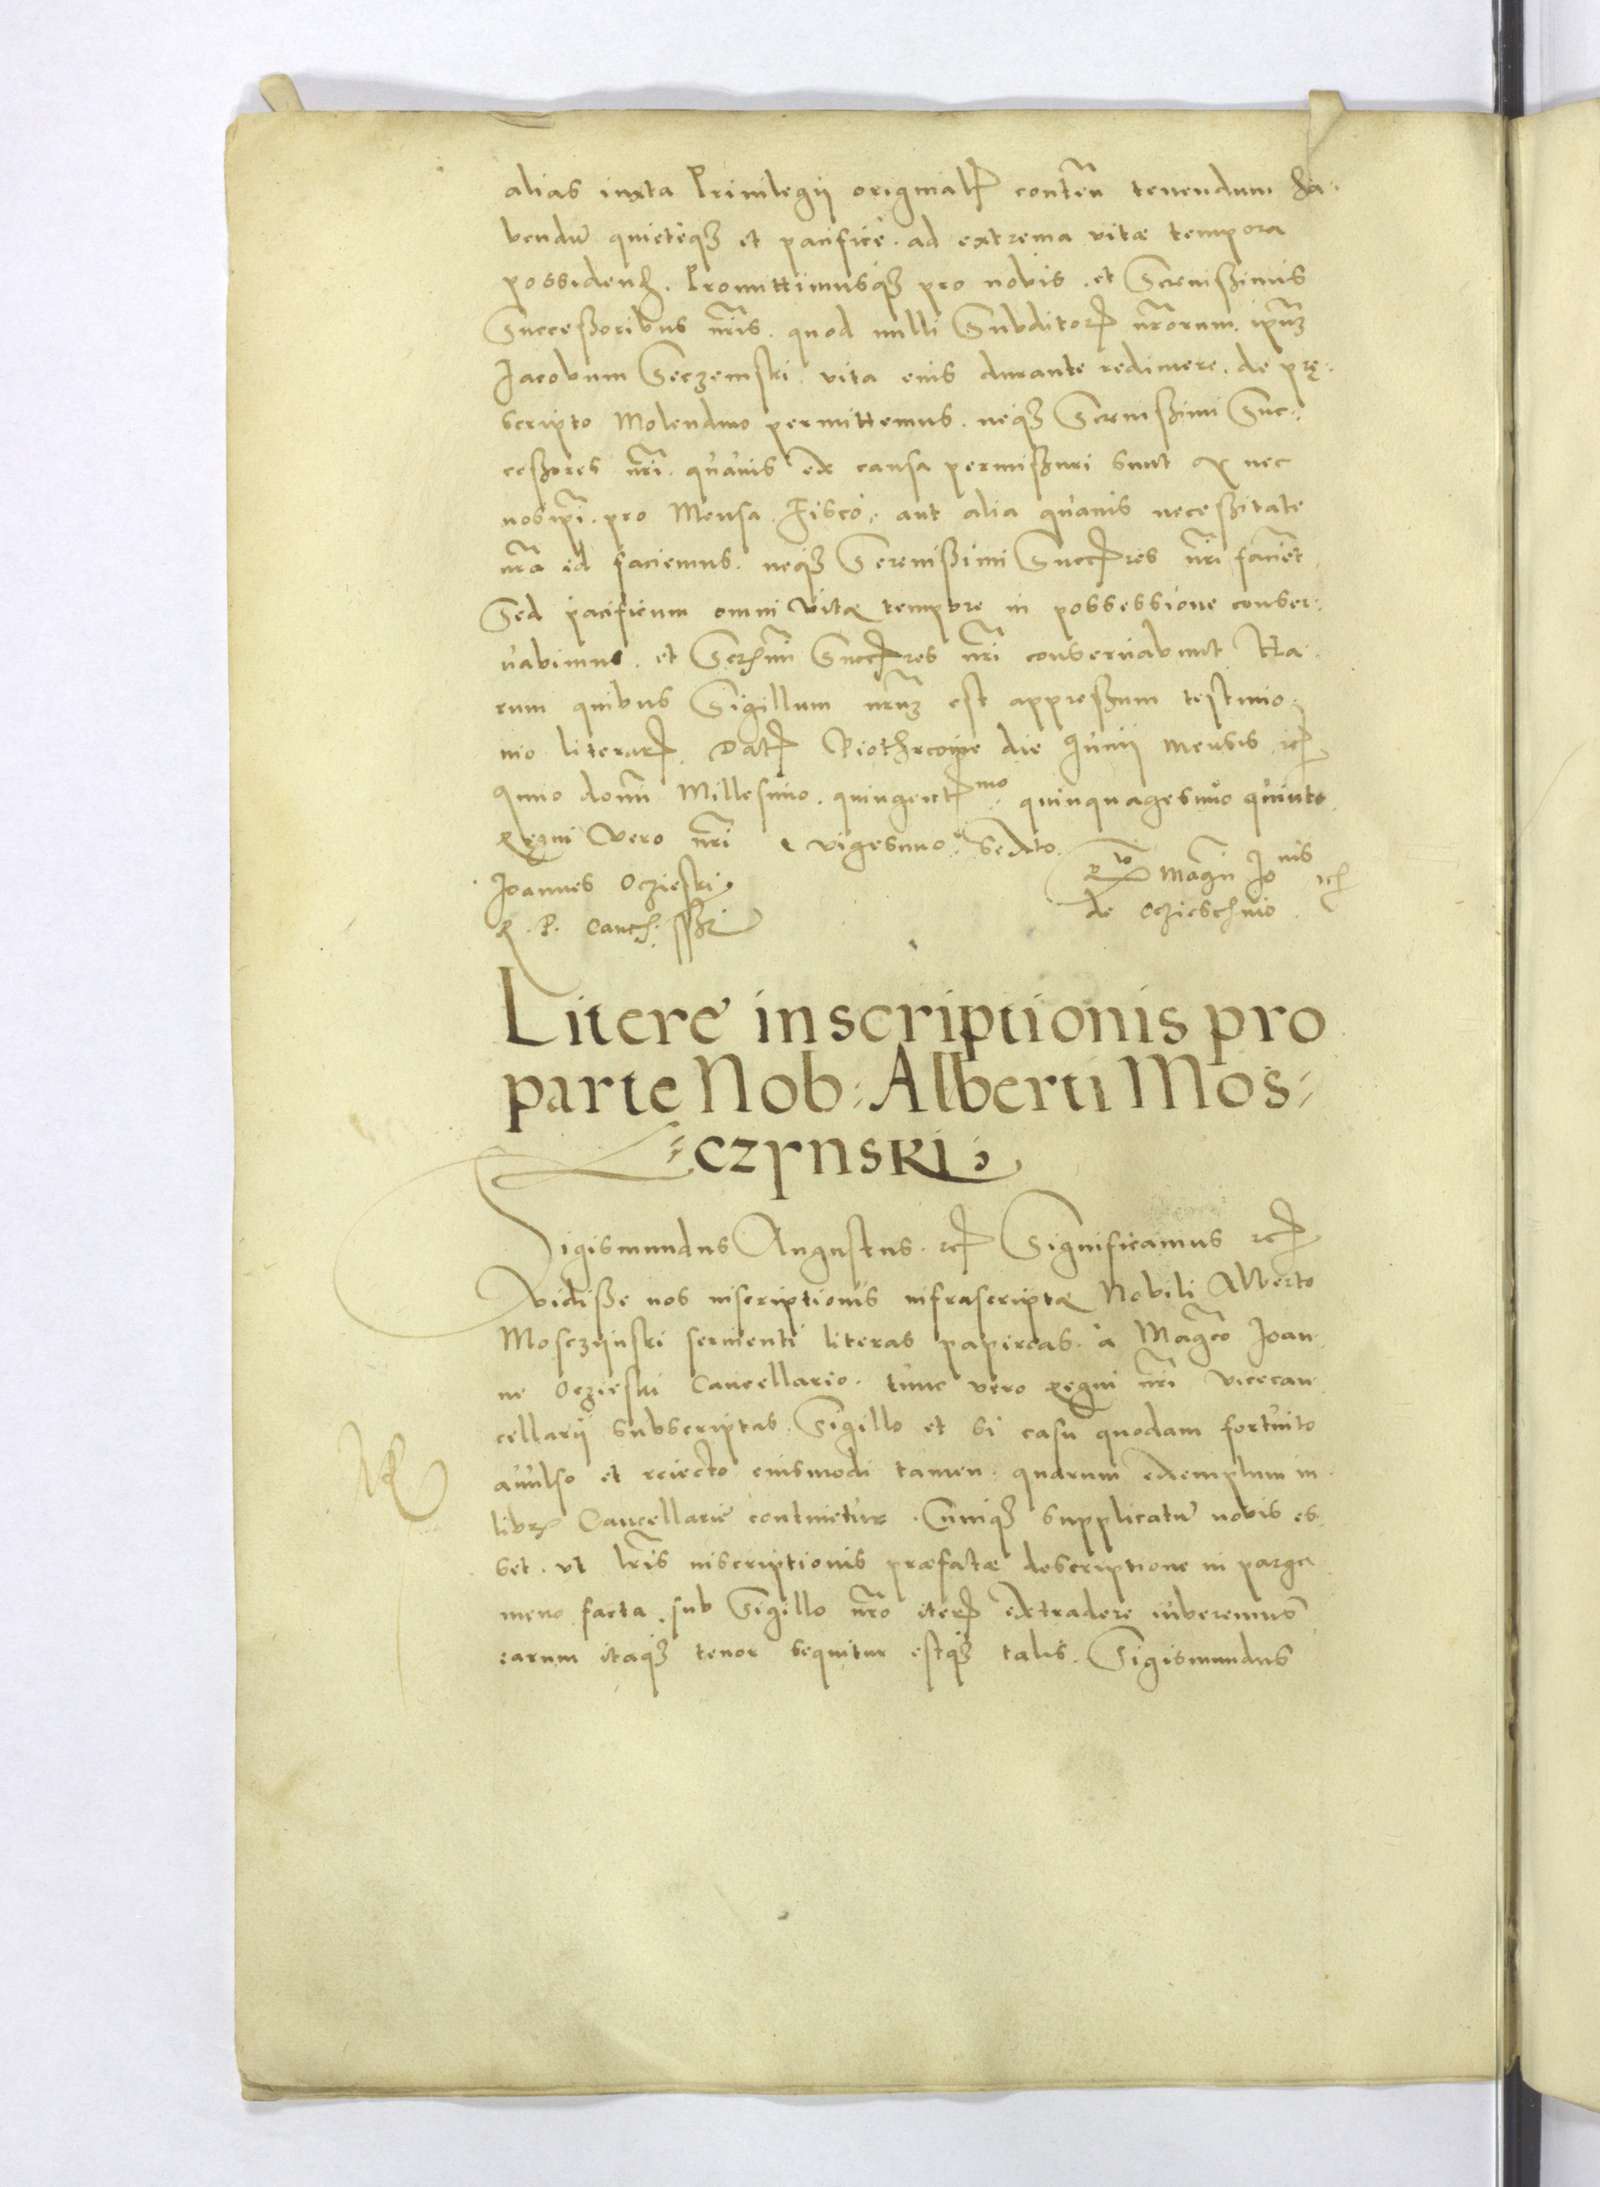 alias iuxta Priuilegij originalr̄ conten̄ tenendum ha-
bendū quieteqz et pacifice. ad extrema vitæ tempora
possidend. Promittimusqz pro nobis. et Serenißimis
Succeßoribus nr̄is. quod nulli Subditor̄ nr̄orum. ipm̄
Jacobum Seczemski. vita eius durante redimere. de prę-
scripto Molendino permittemus. neqz Serenißimi Suc-
ceßores nr̄i. quauis ex causa permißuri sunt nec
nosipī. pro Mensa. Fisco. aut alia quauis neceßitate
nr̄a id faciemus. neqz Serenißimi Succr̄es nr̄i facient
Sed pacificum omni vitæ tempore in possessione conser-
uabimus. et Serm̄i Succr̄es nr̄i conseruabunt. Ha-
rum quibus Sigillum nr̄m est appreßum testimo-
nio literar̄. Dat̄ Piothrcoviæ die Junij mensis etc̄
Anno domī Millesimo. quingent̄mo. quinquagesimo quinto
Regni vero nr̄i vigesimo sexto.
Joannes Oczieski
R. P. Canc. ssz
Rto Magn̄ Jonis
de Oczieschino etc
Litere inscriptionis pro
parte Nob: Alberti Mos=
=czynski.
Sigismundus Augustus. etc̄ Significamus etc̄
Vidiße nos inscriptionis infrascriptæ Nobili Alberto
Mosczijnski seruienti literas papireas. a Magco Joan-
ne Oczieski Cancellario. tunc vero Regni nr̄i Vicecan-
cellarij subscriptas. Sigillo et si casu quodam fortuito
auulso et reiecto eiusmodi tamen. quarum exemplum in
libr̄ Cancellarie continetur. Cumqz supplicatū nobis es-
set. ut lr̄is inscriptionis præfatæ descriptione in parga-
meno facta. sub Sigillo nr̄o iter̄ extradere iuberemus
earum itaqz tenor sequitur estqz talis. Sigismundus